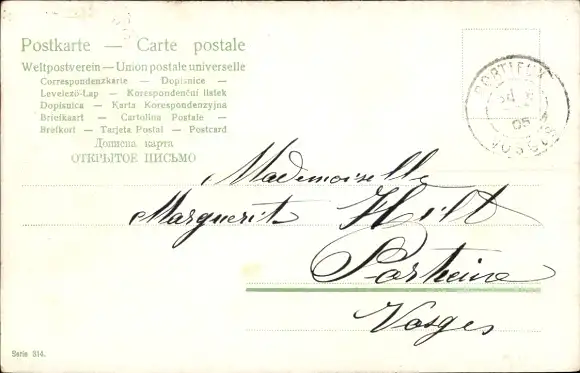 Postkarte — Carte postale
Weltpostverein — Union postale universelle
Correspondenzkarte — Dopisnice —
Levelező-Lap — Korespondenční lístek
Dopisnica — Karta Korespondenzyjna
Briefkaart — Cartolina Postale —
Brefkort — Tarjeta Postal — Postcard
Дописна карта
ОТКРЫТОЕ ПИСЬМО
PORTIEUX
05
VOSGES
Mademoiselle
Marguerite Hilt
Portieux
Vosges
Serie 314.